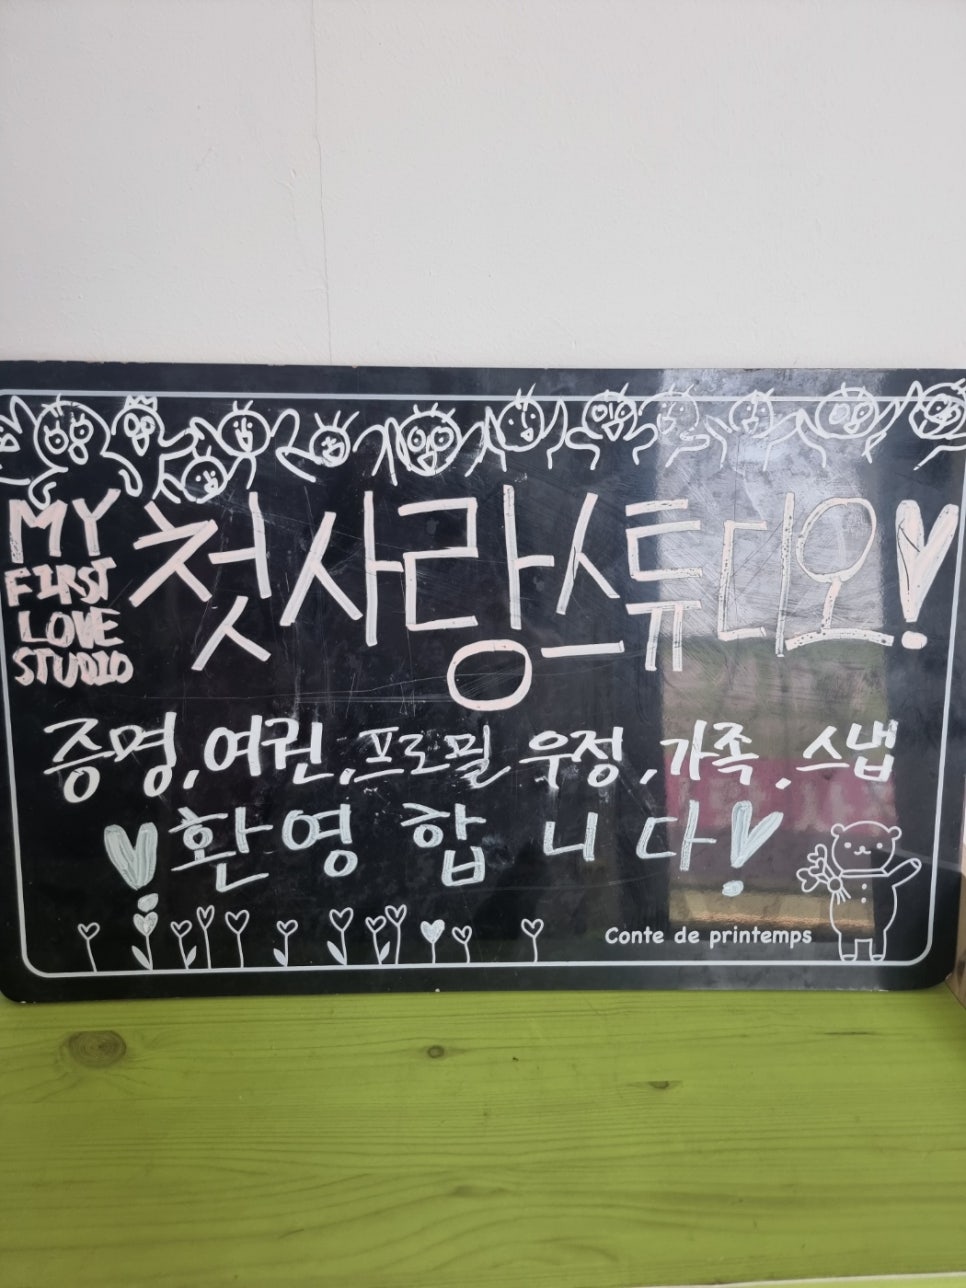 MY
FIRST
LOVE
STUDIO
첫사랑스튜디오!
증명,여권,프로필 우정,가족,스냅
환영 합 니 다!
Conte de printemps